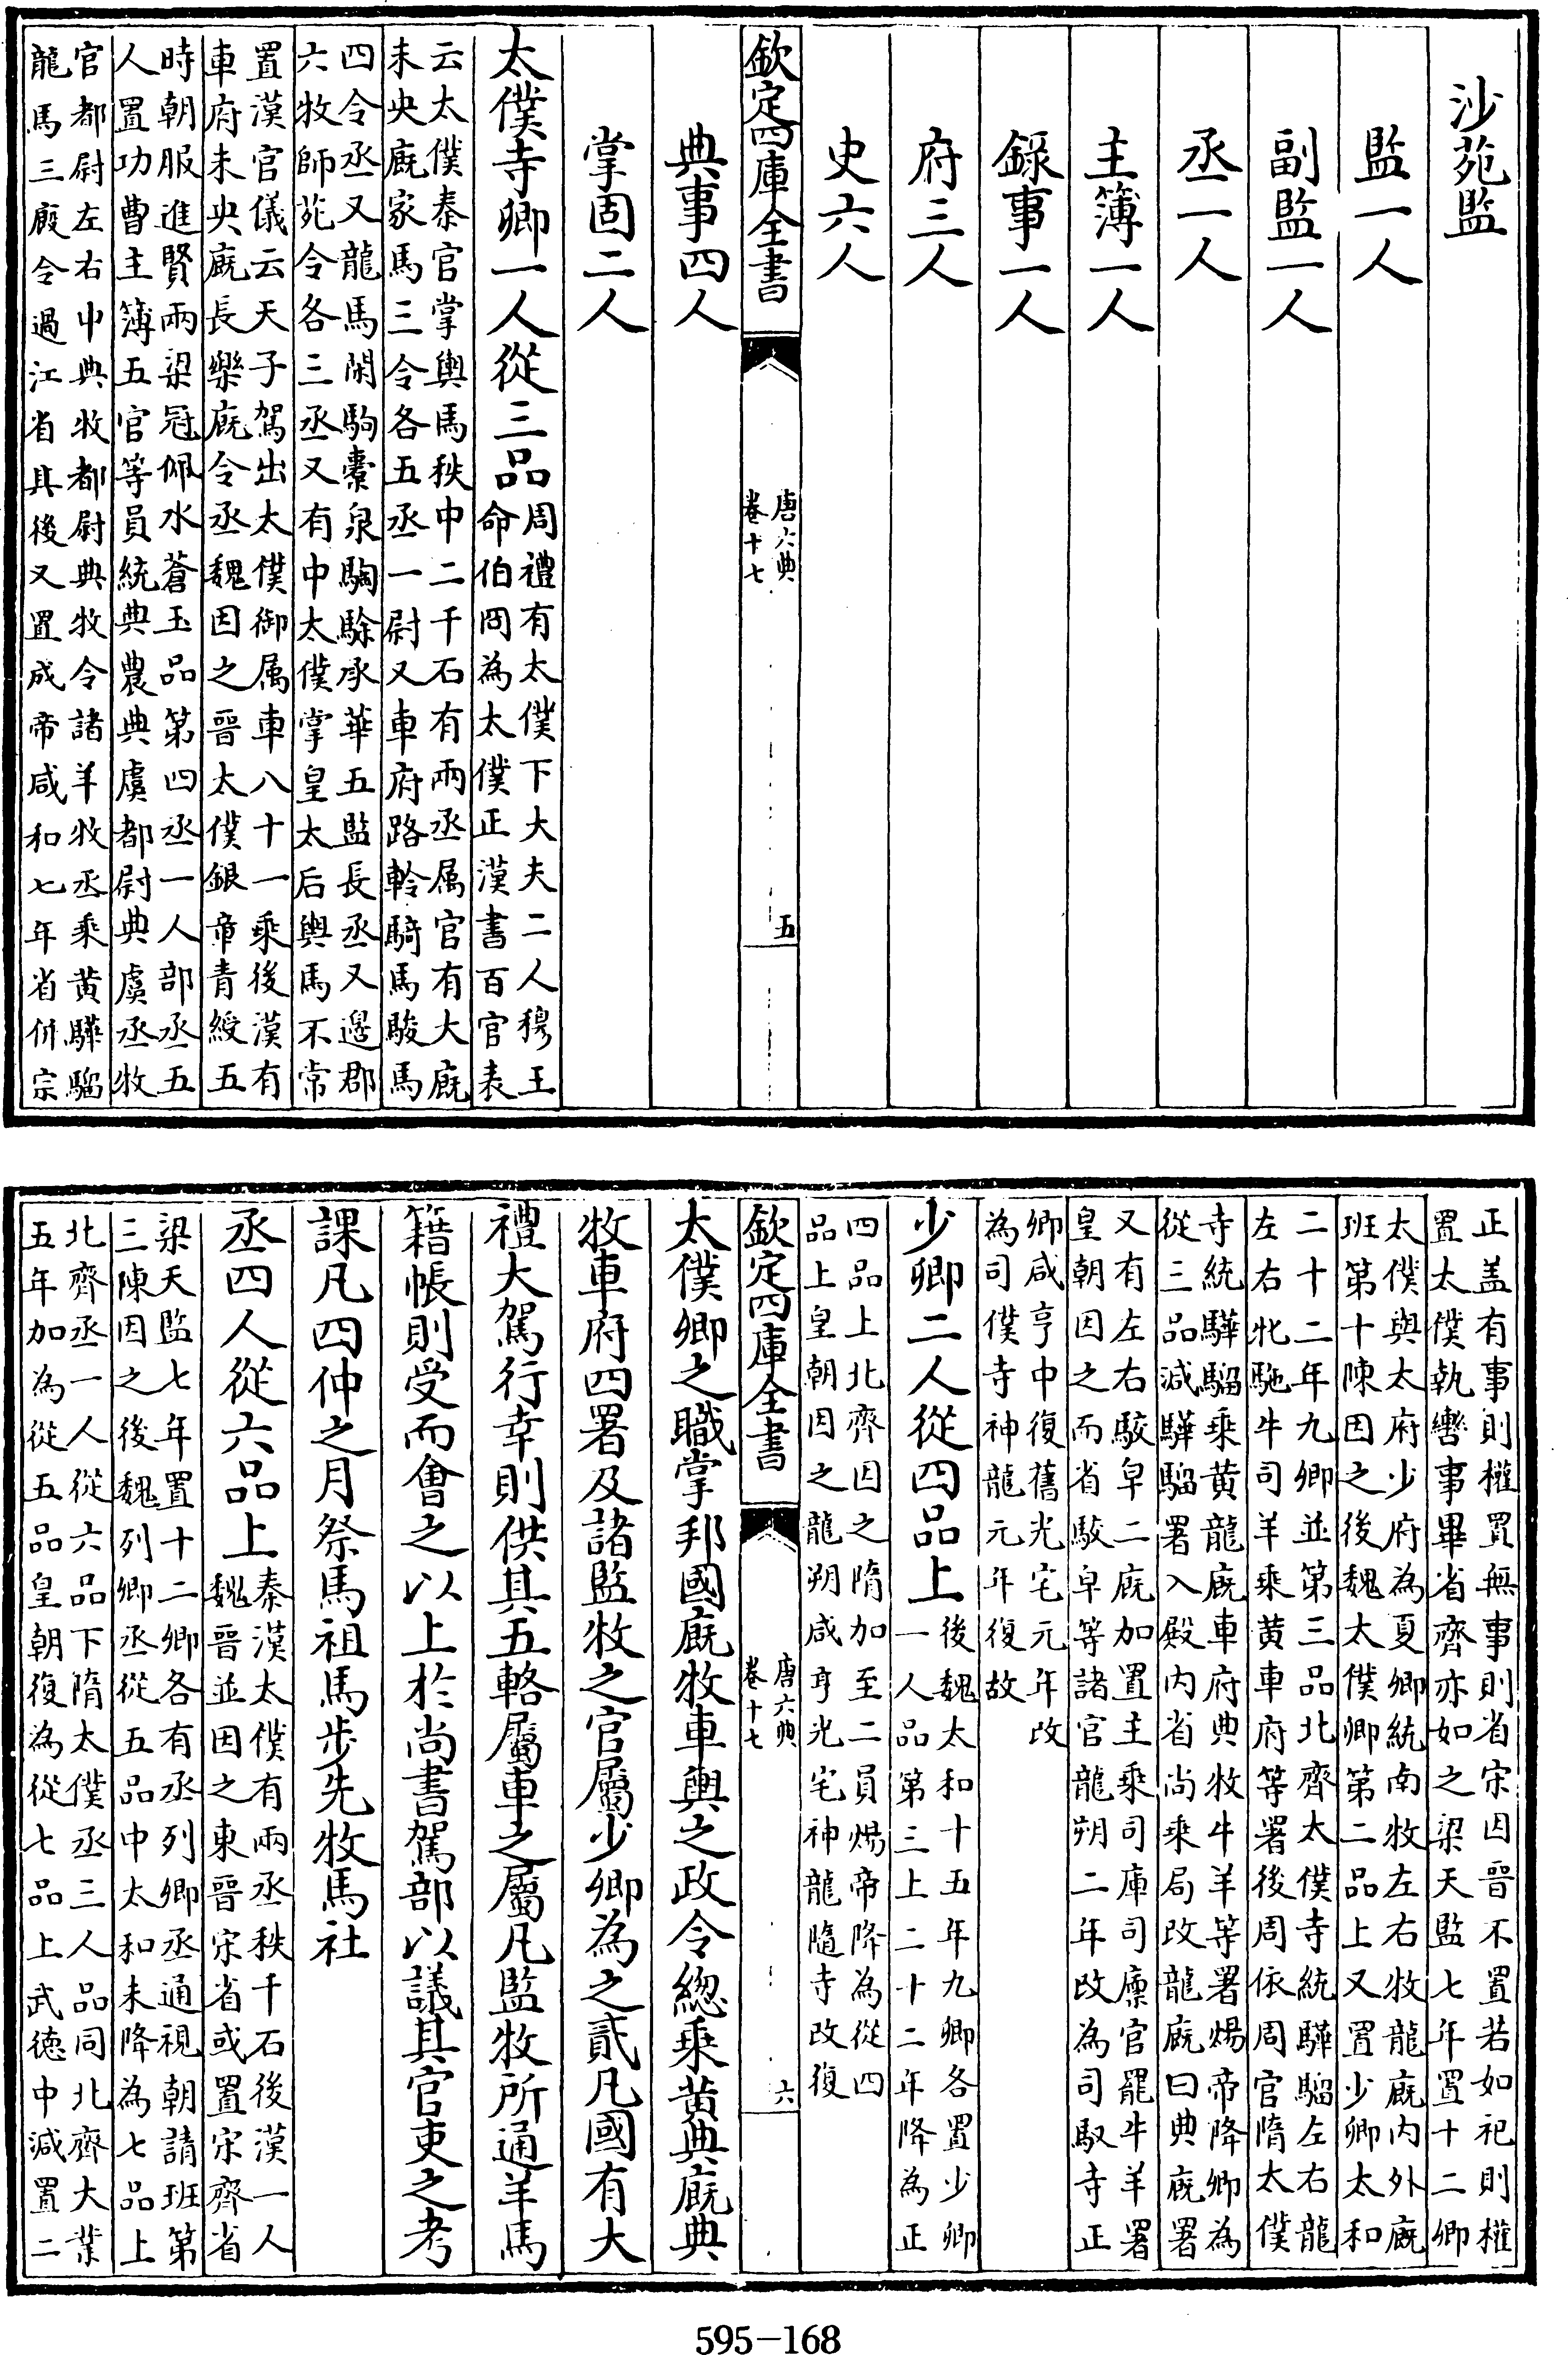 沙苑監
監一人
副監一人
丞一人
主簿一人
錄事一人
府三人
史六人
欽定四庫全書
唐六典
卷十七
五
典事四人
掌固二人
太僕寺卿一人從三品
周禮有太僕下大夫二人穆王
命伯冏為太僕正漢書百官表
云太僕秦官掌輿馬秩中二千石有兩丞属官有大廐
未央廐家馬三令各五丞一尉又車府路軨騎馬駿馬
四令丞又龍馬閑駒橐泉騊駼承華五監長丞又邊郡
六牧師苑令各三丞又有中太僕掌皇太后輿馬不常
置漢官儀云天子駕出太僕御属車八十一乘後漢有
車府未央廐長樂廐令丞魏因之晉太僕銀章青綬五
時朝服進賢兩梁冠佩水蒼玉品第四丞一人部丞五
人置功曹主簿五官等員統典農典虞都尉典虞丞牧
官都尉左右中典牧都尉典牧令諸羊牧丞乘黄驊騮
龍馬三廄令過江省其後又置成帝咸和七年省併宗
正盖有事則權置無事則省宋因晉不置若如祀則權
置太僕執轡事畢省齊亦如之梁天監七年置十二卿
太僕與太府少府為夏卿統南牧左右牧龍廐内外廐
班第十陳因之後魏太僕卿第二品上又置少卿太和
二十二年九卿並第三品北齊太僕寺統驊騮左右龍
左右牝駞牛司羊乘黄車府等署後周依周官隋太僕
寺統驊騮乘黄龍廐車府典牧牛羊等署煬帝降卿為
從三品減驊騮署入殿内省尚乘局改龍廐曰典廐署
又有左右駮皁二廐加置主乘司庫司廩官罷牛羊署
皇朝因之而省駮皁等諸官龍朔二年改為司馭寺正
卿咸亨中復舊光宅元年改
為司僕寺神龍元年復故
少卿二人從四品上
後魏太和十五年九卿各置少卿
一人品第三上二十二年降為正
四品上北齊因之隋加至二員煬帝降為從四
品上皇朝因之龍朔咸亨光宅神龍隨寺改復
欽定四庫全書
唐六典
卷十七
六
太僕卿之職掌邦國廐牧車輿之政令緫乘黄典廐典
牧車府四署及諸監牧之官屬少卿為之貳凡國有大
禮大駕行幸則供其五輅屬車之屬凡監牧所通羊馬
籍帳則受而會之以上於尚書駕部以議其官吏之考
課凡四仲之月祭馬祖馬步先牧馬社
丞四人從六品上
秦漢太僕有兩丞秩千石後漢一人
魏晉並因之東晉宋省或置宋齊省
梁天監七年置十二卿各有丞列卿丞通視朝請班第
三陳因之後魏列卿丞從五品中太和末降為七品上
北齊丞一人從六品下隋太僕丞三人品同北齊大業
五年加為從五品皇朝復為從七品上武徳中減置二
595-168